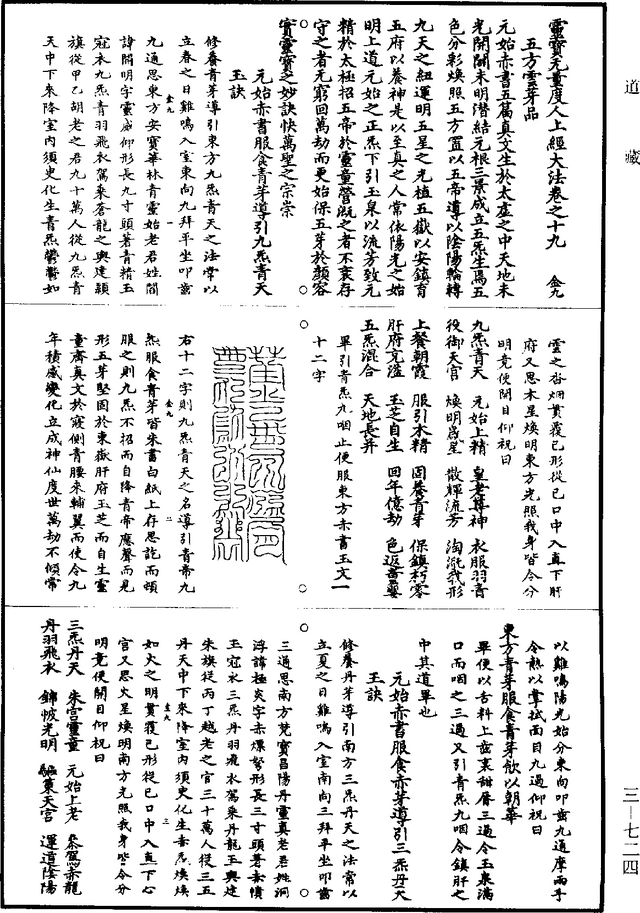 道藏
靈寶无量度人上經大法卷之十九 金九
五方靈芽品
元始赤書五篇真文生於太虛之中天地未
光開闢未明潛結元根三景成立五炁生焉五
色分彩煥照五方置以五帝導以陰陽輪轉
九天之紐運明五星之光植五嶽以安鎮育
五府以養神是以至真之人常依陽光之始
明上道元始之正炁下引玉泉以流芳致元
精於太極招五帝於靈童營既之者不衰存
守之者无窮回萬劫而更始保五芽於顏容
實靈寶之妙訣快萬聖之宗崇
元始赤書服食青芽導引九炁青天
玉訣
修養青芽導引東方九炁青天之法常以
立春之日雞鳴入室東向九拜平坐叩齒
九通思東方安寶華林青靈始老君姓閻
諱開明字靈威仰形長九寸頭著青精玉
冠衣九炁青羽飛衣駕乘蒼龍之輿建鶉
旗從甲乙胡老之君九十萬人從九炁青
天中下來降室內須臾化生青炁鬱鬱如
金九
一
雲之沓烟貫覆己形從己口中入直下肝
府又思木星煥明東方光照我身皆令分
明竟便開目仰祝曰
九炁青天 元始上精 皇老尊神 衣服羽青
役御天官 煥明歲星 散輝流芳 淘溉我形
上餐朝霞 服引木精 固養青芽 保鎮朽零
肝府充溢 玉芝自生 回年億劫 色返嬰童
五炁混合 天地長并
畢引青炁九咽止便服東方赤書玉文一
十二字
右十二字則九炁青天之名導引青帝九
炁服食青芽皆朱書白紙上存思訖而頓
服之則九炁不招而自降青帝應聲而見
形五芽堅固於東嶽肝府玉芝而自生靈
童齎真文於寢側青腰來輔翼而使令九
年積感變化立成神仙度世萬劫不傾常
金九
二
以雞鳴陽光始分東向叩齒九通摩兩手
令熱以掌拭面目九過仰祝曰
東方青芽服食青芽飲以朝華
畢便以舌料上齒表甜脣三過令玉泉滿
口而咽之三過又引青炁九咽令鎮肝之
中其道畢也
元始赤書服食赤芽導引三炁丹天
玉訣
修養丹芽導引南方三炁丹天之法常以
立夏之日雞鳴入室南向三拜平坐叩齒
三通思南方梵寶昌陽丹靈真老君姓洞
浮諱極炎字赤熛弩形長三寸頭著赤幘
玉冠衣三炁丹羽飛衣駕乘丹龍玉輿建
朱旗從丙丁越老之官三十萬人從三五
丹天中下來降室內須臾化生赤炁煥煥
金九
三
如火之明貫覆己形從己口中入直下心
宮又思火星煥明南方光照我身皆令分
明竟便開目仰祝曰
三炁丹天 朱宮靈童 元始上老 忝駕赤龍
丹羽飛衣 錦帔光明 驅策天官 運道陰陽
三—七二四